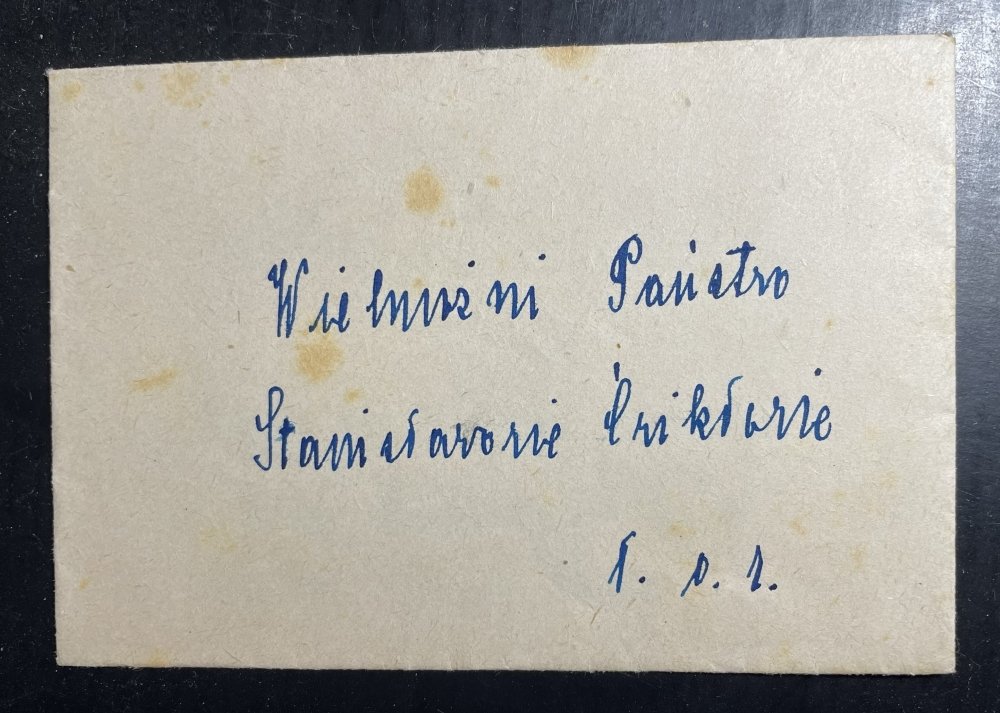 Wielmożni Państwo
Stanisławowie Ćwikłowie